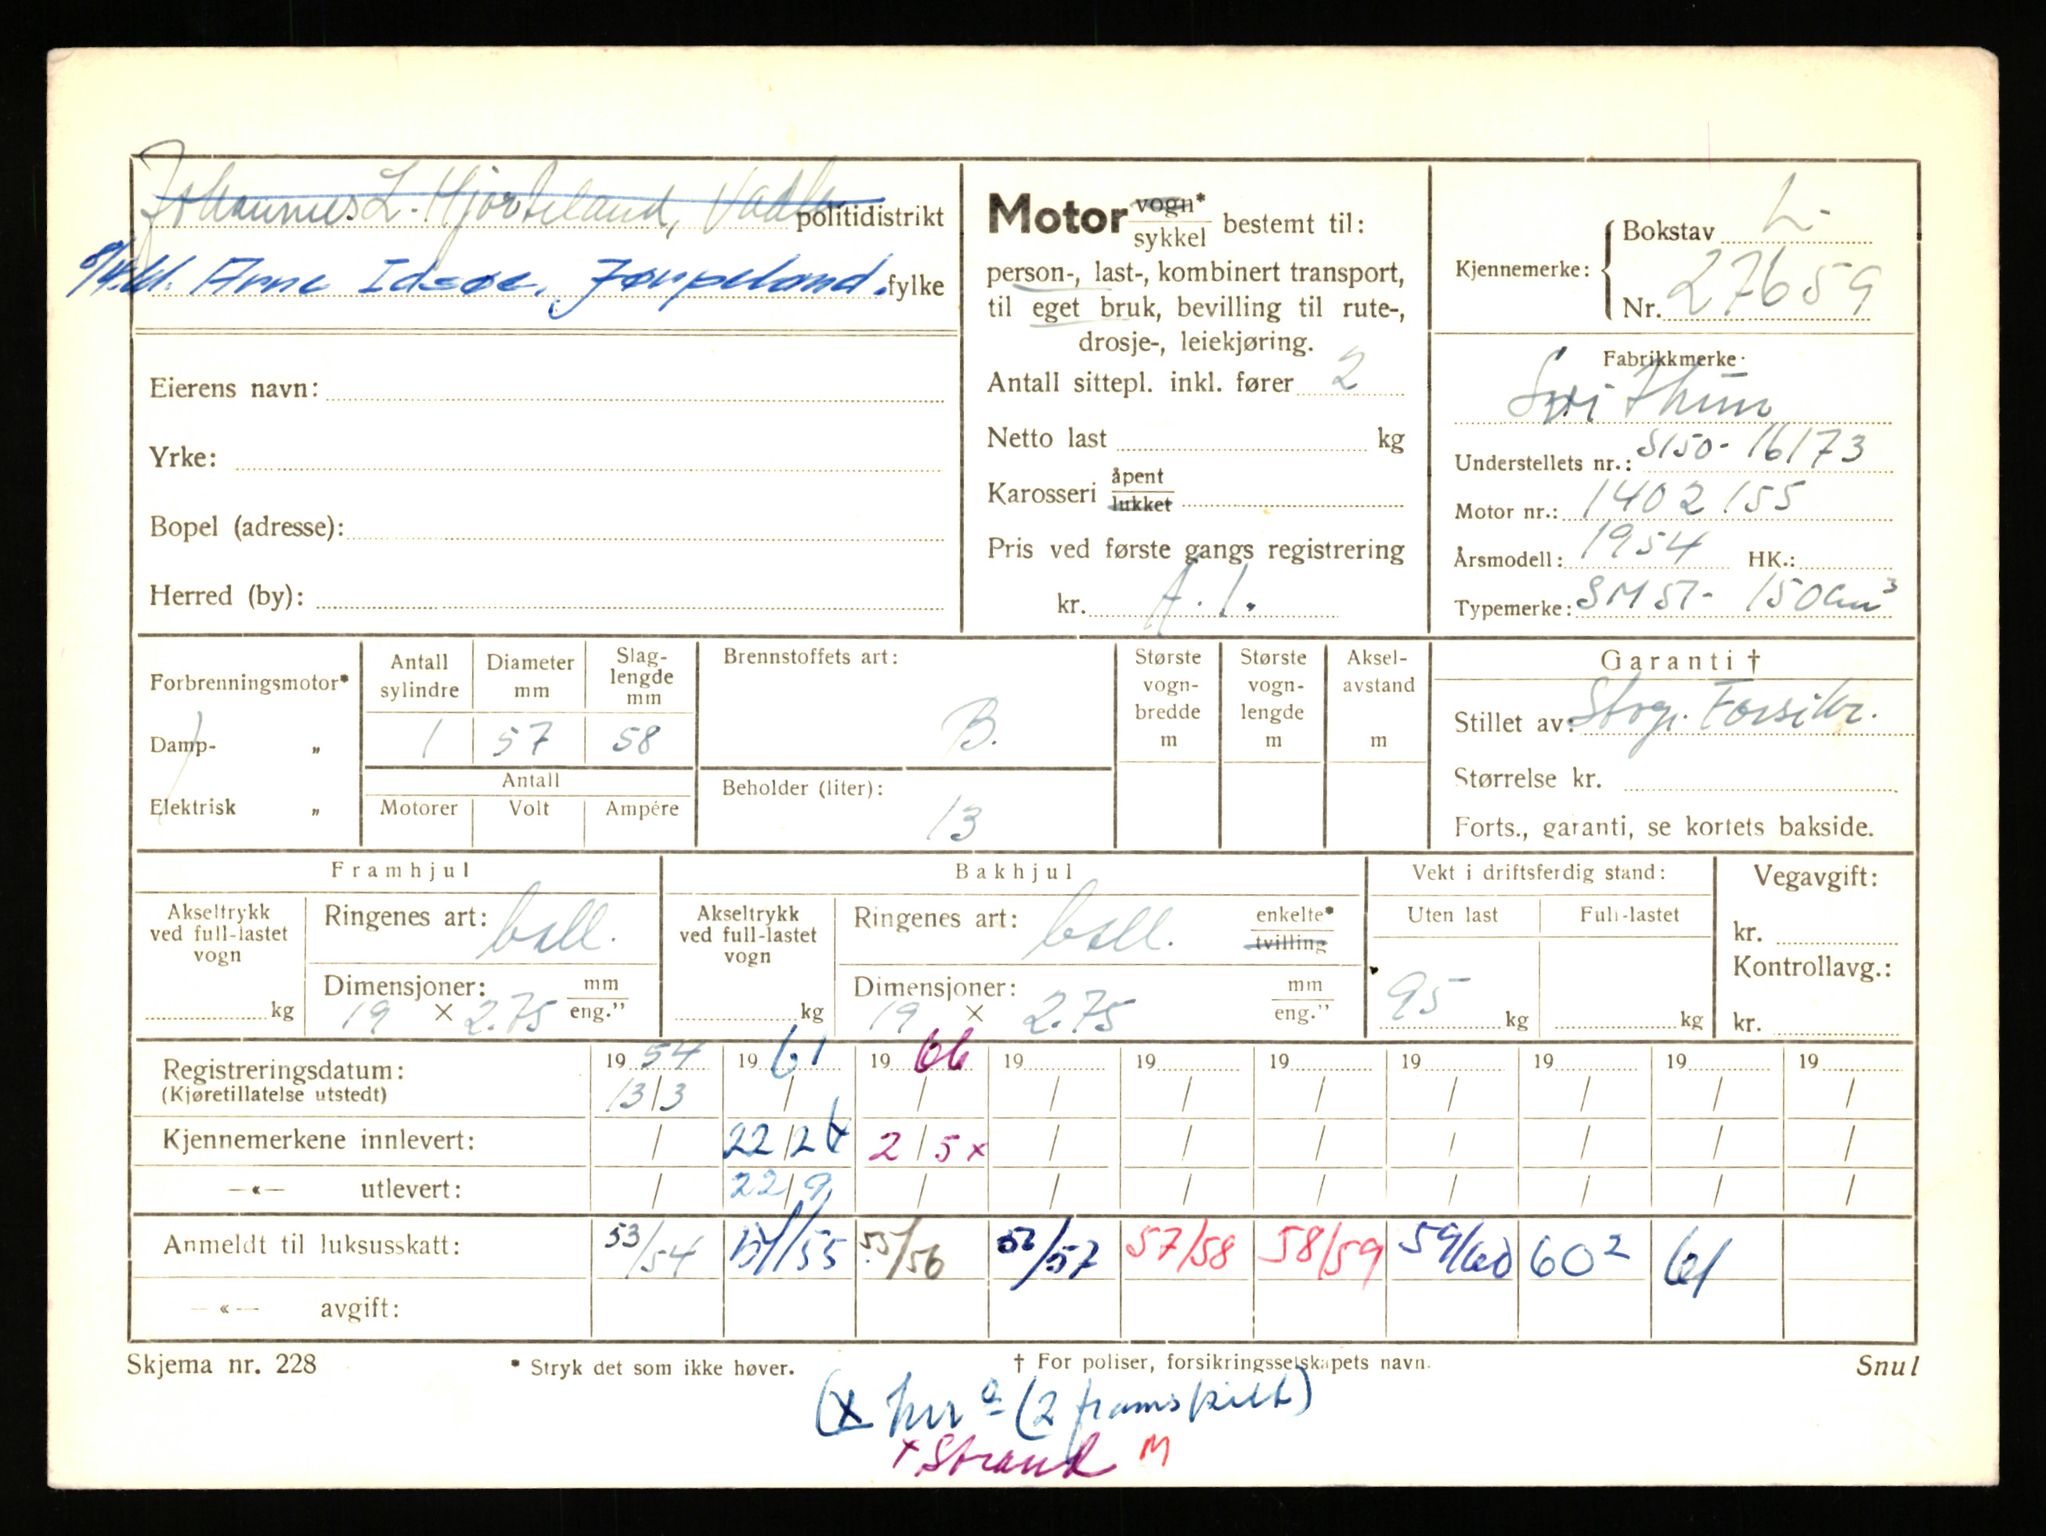 Johannes L. Hjorteland, Vadla politidistrikt
Arne Idsøe, Jørpeland. fylke
Eierens navn:
Yrke:
Bopel (adresse):
Herred (by):
Motor vogn* sykkel bestemt til:
person-, last-, kombinert transport,
til eget bruk, bevilling til rute-,
drosje-, leiekjøring.
Antall sittepl. inkl. fører 2
Netto last kg
Karosseri åpent lukket
Pris ved første gangs registrering
kr.
Kjennemerke: Bokstav L-
Nr. 27659
Fabrikkmerke:
Svithun
Understellets nr.: S150-16173
Motor nr.: 1402155
Årsmodell: 1954 HK.:
Typemerke: SM 51- 150 cm³
Forbrenningsmotor*
Damp- „
Elektrisk „
Antall sylindre Diameter mm Slag-lengde mm
1 57 58
Antall
Motorer Volt Ampére
Brennstoffets art:
B.
Beholder (liter):
13
Største vogn-bredde m
Største vogn-lengde m
Aksel-avstand m
Garanti †
Stillet av: Storg. Forsikr.
Størrelse kr.
Forts., garanti, se kortets bakside.
Framhjul
Akseltrykk ved full-lastet vogn kg
Ringenes art: ball.
Dimensjoner: mm eng."
19 × 2.75
Bakhjul
Akseltrykk ved full-lastet vogn kg
Ringenes art: ball. enkelte* tvilling
Dimensjoner: mm eng."
19 × 2.75
Vekt i driftsferdig stand:
Uten last Full-lastet
95 kg kg
Vegavgift:
kr.
Kontrollavg.:
kr.
Registreringsdatum: 19 54 19 61 19 66 19 19 19 19 19 19 19
(Kjøretillatelse utstedt) 13/3 / / / / / / / / /
Kjennemerkene innlevert: / 22/2 x 2/5 x / / / / / / /
—«— utlevert: / 22/9 / / / / / / / /
Anmeldt til luksusskatt: 53/54 54/55 55/56 56/57 57/58 58/59 59/60 60² 61
—«— avgift:
Skjema nr. 228 * Stryk det som ikke høver. † For poliser, forsikringsselskapets navn. Snul
(2 framskilt)
x Strand M